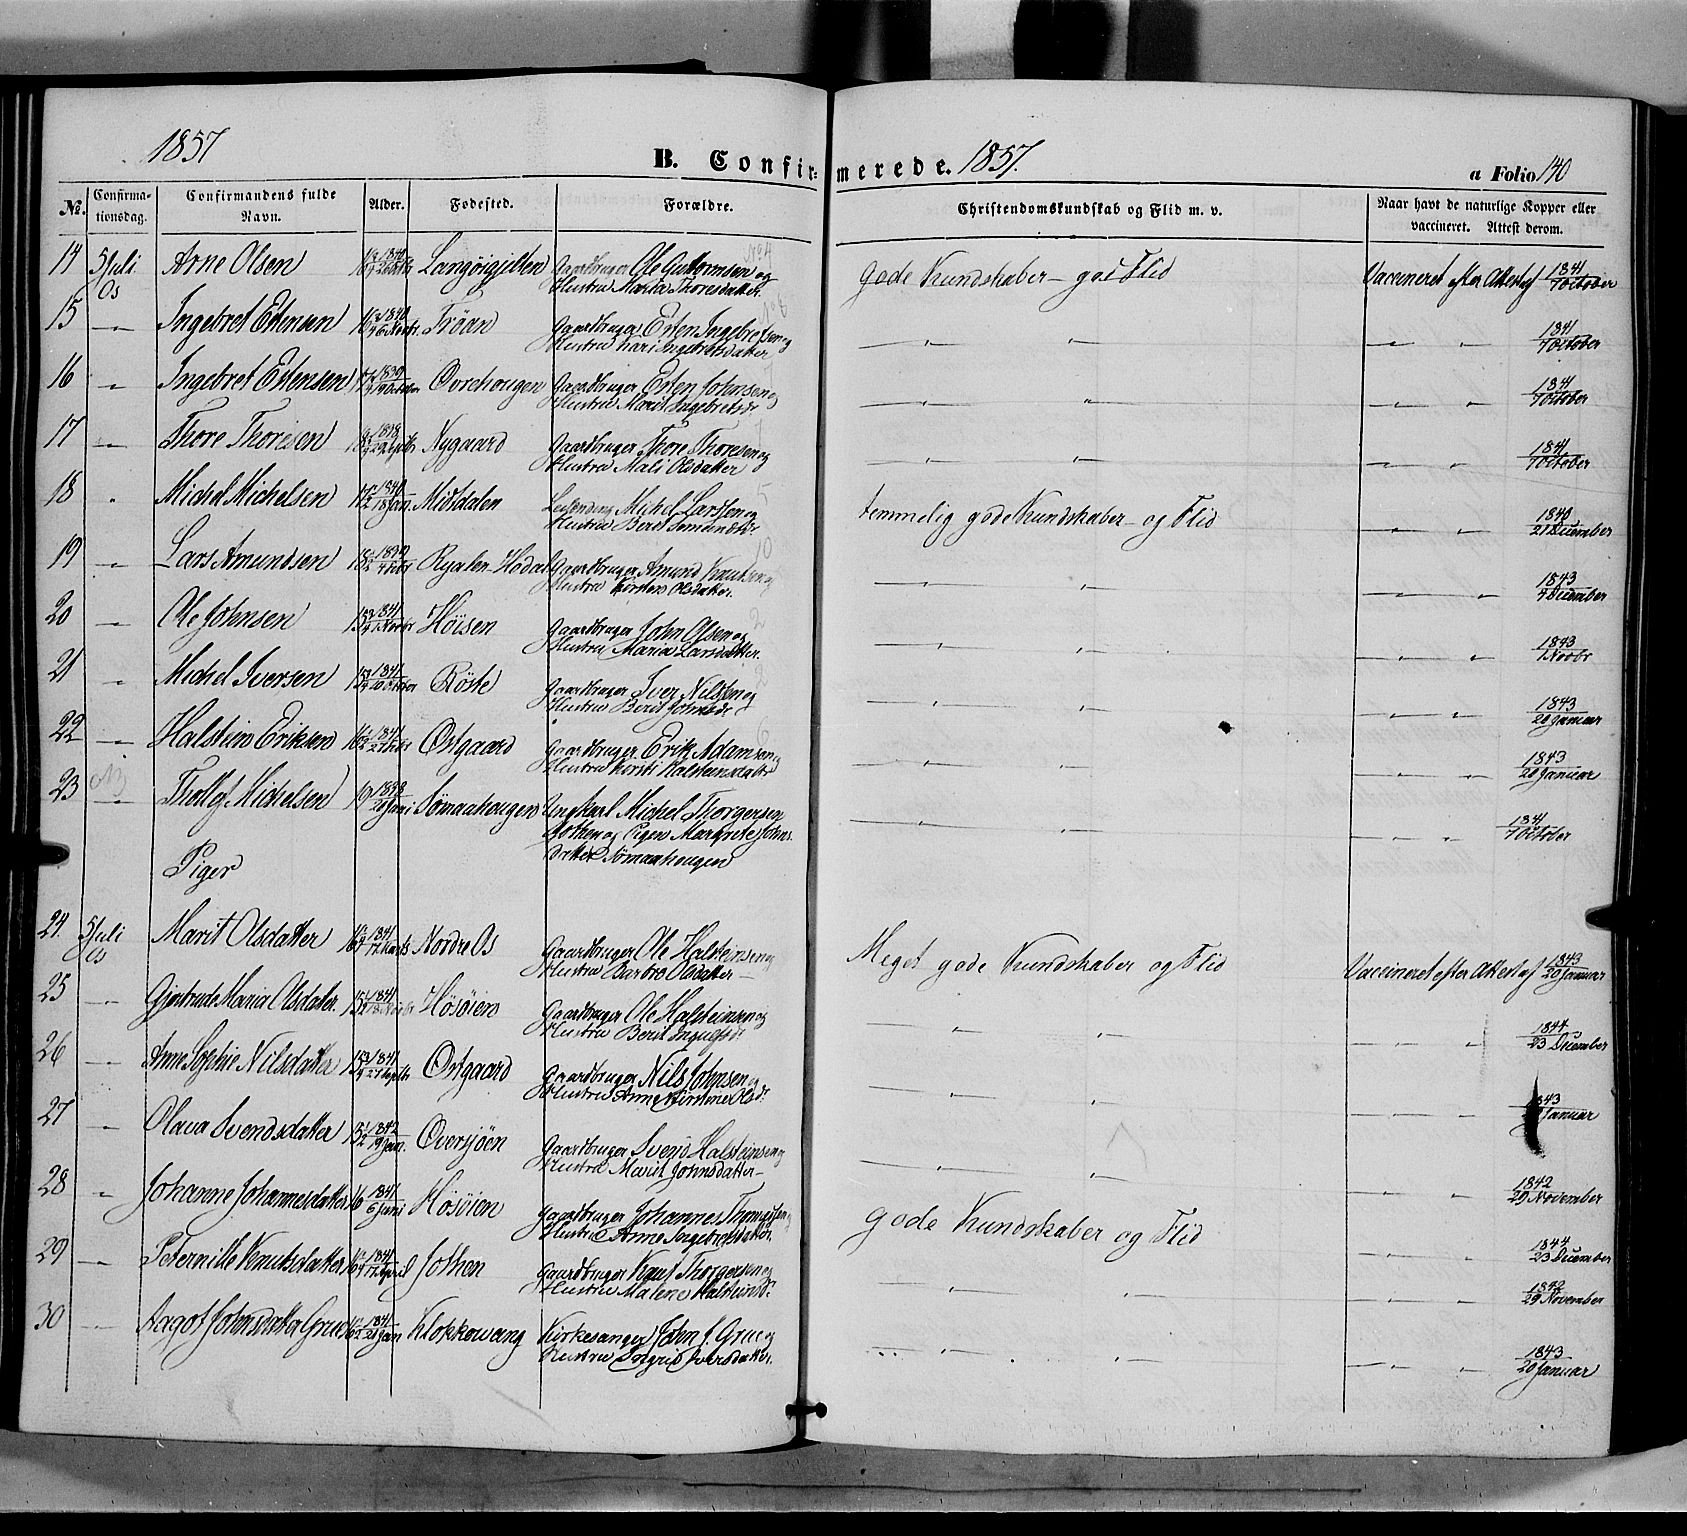 1857
B. Confirmerede. 1857.
a Folio 140
No. Confirmationsdag. Confirmandens fulde Navn. Alder. Fødested. Forældre. Christendomskundskab og Flid m. v. Naar havt de naturlige Kopper eller vaccineret. Attest derom.
14 5 Juli Os Arne Olsen Langörigjelten Gaardbruger Ole Guttormsen og
Hustru Marta Thoresdatter. gode Kundskaber - god Flid Vaccineret efter Attest af 1841 7 October
15 — " — Ingebret Estensen Tröan Gaardbruger Esten Ingebretsen og
Hustru Kari Ingebretsdatter — " — " — " — 1841 7 October
16 " Ingebret Estensen Ovrehougen Gaardbruger Esten Johnsen og
Hustru Marit Ingebretsdr — " — " — " — 1841 7 October
17 — " — Thore Thoresen Nygaard Gaardbruger Thore Thoresen og
Hustru Mali Olsdatter — " — " — " — 1841 7 October
18 " Michel Michelsen 18 Jan. Midtdalen Michel Larssen og
Hustru Berit temmelig gode Kundskaber - og Flid — " — 1840 21 December
19 — " — Lars Amundsen Ryalen-Hodal Gaardbruger Amund Knudsen og
Hustru Kirsten Olsdatter. — " — " — " — 1843 4 December
20 — " — Ole Johnsen Höisen Gaardbruger John Olsen og
Hustru Maria Larsdatter. — " — " — " — 1843 7 Novbr
21 " Michel Iversen 1841 Röste Gaardbruger Iver Nilssen og
Hustru Berit Johnsdr — " — " — " — 1843 20 Januar
22 — " — Halstein Eriksen 1841 Ostgaard Gaardbruger Erik Adamsen og
Hustru Kirsti Halsteinsdatter — " — " — " — 1843 20 Januar
23 — " — Thollef Michelsen Sömaahougen Ungkarl Michel Thorgersen
Jothen og Pigen Margrete Johns-
datter Sömaahougen — " — " — " — 1841 7 October
Piger
24. 5 Juli Os Marit Olsdatter 1841 Nordre Os Gaardbruger Ole Halsteinsen og
Hustru Barbro Olsdatter — Meget gode Kundskaber og Flid Vaccineret efter Attest af 1843 20 Januar
25 — " — Gjertrud Maria Olsdatter. 1841 Hösöien Gaardbruger Ole Halsteinsen og
Hustru Berit Ingulfsdr. — " — " — " — 1844 23 December
26 — " — Anne Sophie Nilsdatter 1841 Ostgaard Gaardbruger Nils Johnsen og
Hustru Anne Kirstine Olsdr. — " — " — " — 1843 Januar
27 — " — Olava Svendsdatter 1842 19 Jan. Oversjöen Gaardbruger Svend Halsteinsen og
Hustru Marit Johnsdatter — — " — " — " — 1842 29 November
28 " Johanne Johannesdatter 16 1841 6 Juni Hösöien Gaardbruger Johannes
Hustru Anne Ingebretsdatter. gode Kundskaber og Flid — " — 1844 23 December
29 — " — Peternille Knutsdatter 1841 April Jothen Gaardbruger Knut Thorgersen og
Hustru Malene Halsteinsdr. — " — " — " — 1842 29 November
30 — " — Aagot Johnsdatter Grue 1841 Jan Klokkevang Kirkesanger John J. Grue og
Hustru Ingrid Iversdatter. — " — " — " — 1843 20 Januar